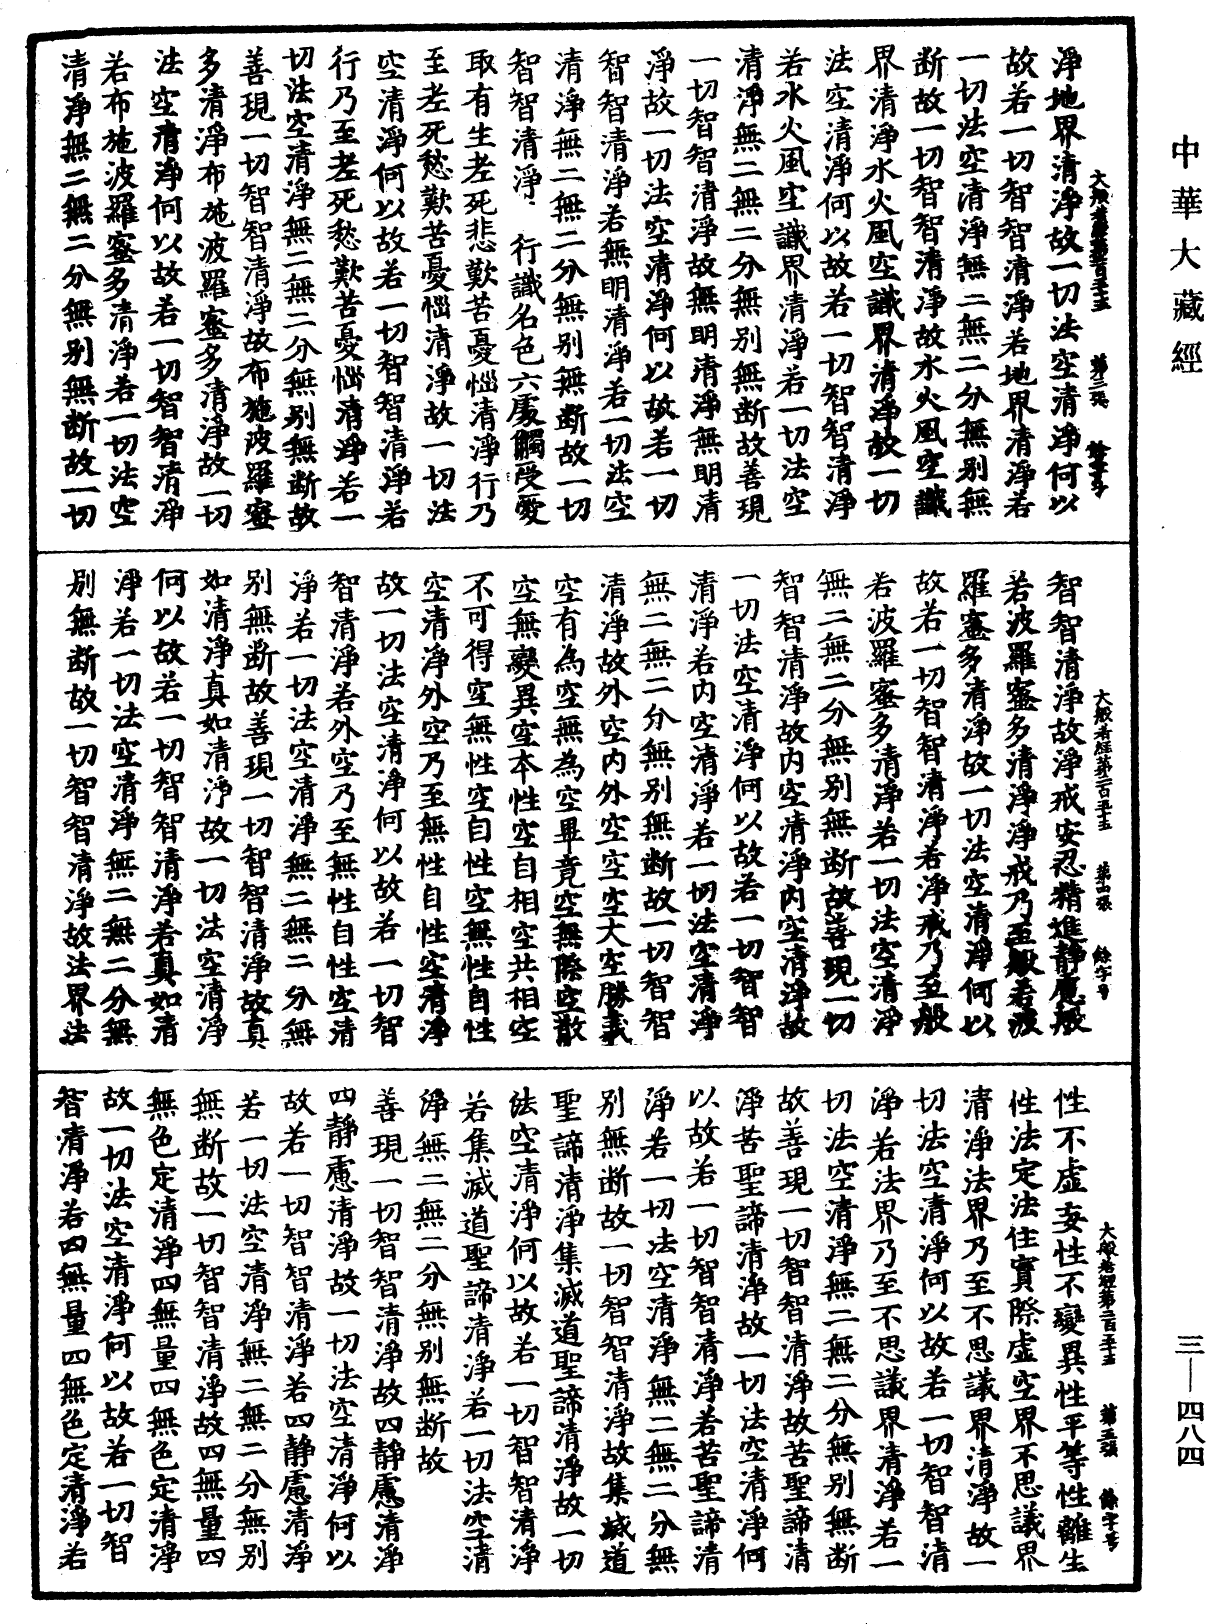 中華大藏經
大般若經第二百五十五 第三張 餘字号
淨地界清淨故一切法空清淨何以
故若一切智智清淨若地界清淨若
一切法空清淨無二無二分無別無
断故一切智智清淨故水火風空識
界清淨水火風空識界清淨故一切
法空清淨何以故若一切智智清淨
若水火風空識界清淨若一切法空
清淨無二無二分無別無断故善現
一切智智清淨故無明清淨無明清
淨故一切法空清淨何以故若一切
智智清淨若無明清淨若一切法空
清淨無二無二分無別無断故一切
智智清淨 行識名色六處觸受愛
取有生老死愁歎苦憂惱清淨行乃
至老死愁歎苦憂惱清淨故一切法
空清淨何以故若一切智智清淨若
行乃至老死愁歎苦憂惱清淨若一
切法空清淨無二無二分無別無断故
善現一切智智清淨故布施波羅蜜
多清淨布施波羅蜜多清淨故一切
法空清淨何以故若一切智智清淨
若布施波羅蜜多清淨若一切法空
清淨無二無二分無別無断故一切
大般若經第二百五十五 第四張 餘字号
智智清淨故淨戒安忍精進靜慮般
若波羅蜜多清淨淨戒乃至般若波
羅蜜多清淨故一切法空清淨何以
故若一切智智清淨若淨戒乃至般
若波羅蜜多清淨若一切法空清淨
無二無二分無別無断故善現一切
智智清淨故内空清淨内空清淨故
一切法空清淨何以故若一切智智
清淨若内空清淨若一切法空清淨
無二無二分無別無断故一切智智
清淨故外空内外空空空大空勝義
空有為空無為空畢竟空無際空散
空無變異空本性空自相空共相空
不可得空無性空自性空無性自性
空清淨外空乃至無性自性空清淨
故一切法空清淨何以故若一切智
智清淨若外空乃至無性自性空清
淨若一切法空清淨無二無二分無
別無断故善現一切智智清淨故真
如清淨真如清淨故一切法空清淨
何以故若一切智智清淨若真如清
淨若一切法空清淨無二無二分無
別無断故一切智智清淨故法界法
大般若經第二百五十五 第五張 餘字号
性不虛妄性不變異性平等性離生
性法定法住實際虛空界不思議界
清淨法界乃至不思議界清淨故一
切法空清淨何以故若一切智智清
淨若法界乃至不思議界清淨若一
切法空清淨無二無二分無別無断
故善現一切智智清淨故苦聖諦清
淨苦聖諦清淨故一切法空清淨何
以故若一切智智清淨若苦聖諦清
淨若一切法空清淨無二無二分無
別無断故一切智智清淨故集滅道
聖諦清淨集滅道聖諦清淨故一切
法空清淨何以故若一切智智清淨
若集滅道聖諦清淨若一切法空清
淨無二無二分無別無断故
善現一切智智清淨故四靜慮清淨
四靜慮清淨故一切法空清淨何以
故若一切智智清淨若四靜慮清淨
若一切法空清淨無二無二分無別
無断故一切智智清淨故四無量四
無色定清淨四無量四無色定清淨
故一切法空清淨何以故若一切智
智清淨若四無量四無色定清淨若
三—四八四